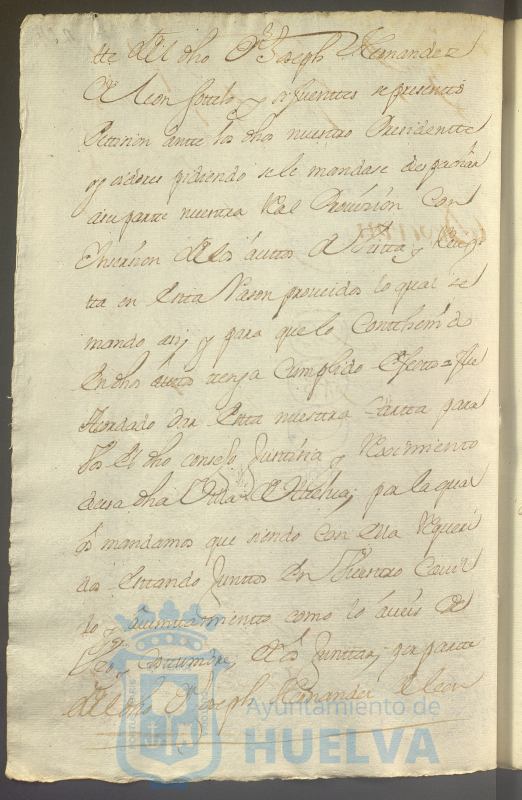 tte del dho Dn Joseph Hernandez
de leon sotelo y sifuentes se presentó
Petision ante los dhos nuestro Presidentte
y oydores pidiendo se le mandase despachar
a su parte nuestra Real Provision con
Insersion de los auttos de Vista y Revis
ta en esta Rason proveidos lo qual se
mando asi, y para que lo Contthenido
en dhos auttos tenga Cumplido efecto fue
Acordado dar estta nuestra Cartta para
Vos el dho consejo Justicia y Reximiento
de esa dha Villa de Huelva; por la qual
os mandamos que siendo con ella Requeri
dos esttando Junttos en Vuestro Cavil
do y aiuntamientto como lo aveis de
Uso y costumbre, de os Junttar, por partte
del dho Dn Joseph Hernandez de leon
Ayuntamiento de
HUELVA